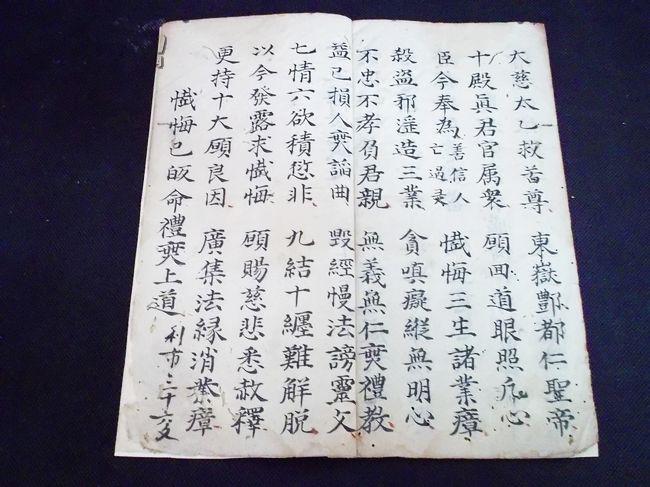 大慈太乙救苦尊　東嶽酆都仁聖帝
十殿眞君官属衆　願回道眼照凢心
臣今奉為善信人亡過灵　懺悔三生諸業瘴
殺盗邪滛造三業　貪嗔癡縱無明心
不忠不孝負君親　無義無仁無禮教
益己損人無謟曲　毀經慢法謗靈文
七情六欲積愆非　九結十纏難解脱
以今發露求懺悔　願賜慈悲悉赦釋
更持十大願良因　廣集法縁消業瘴
懺悔已皈命禮無上道　利市三十六文